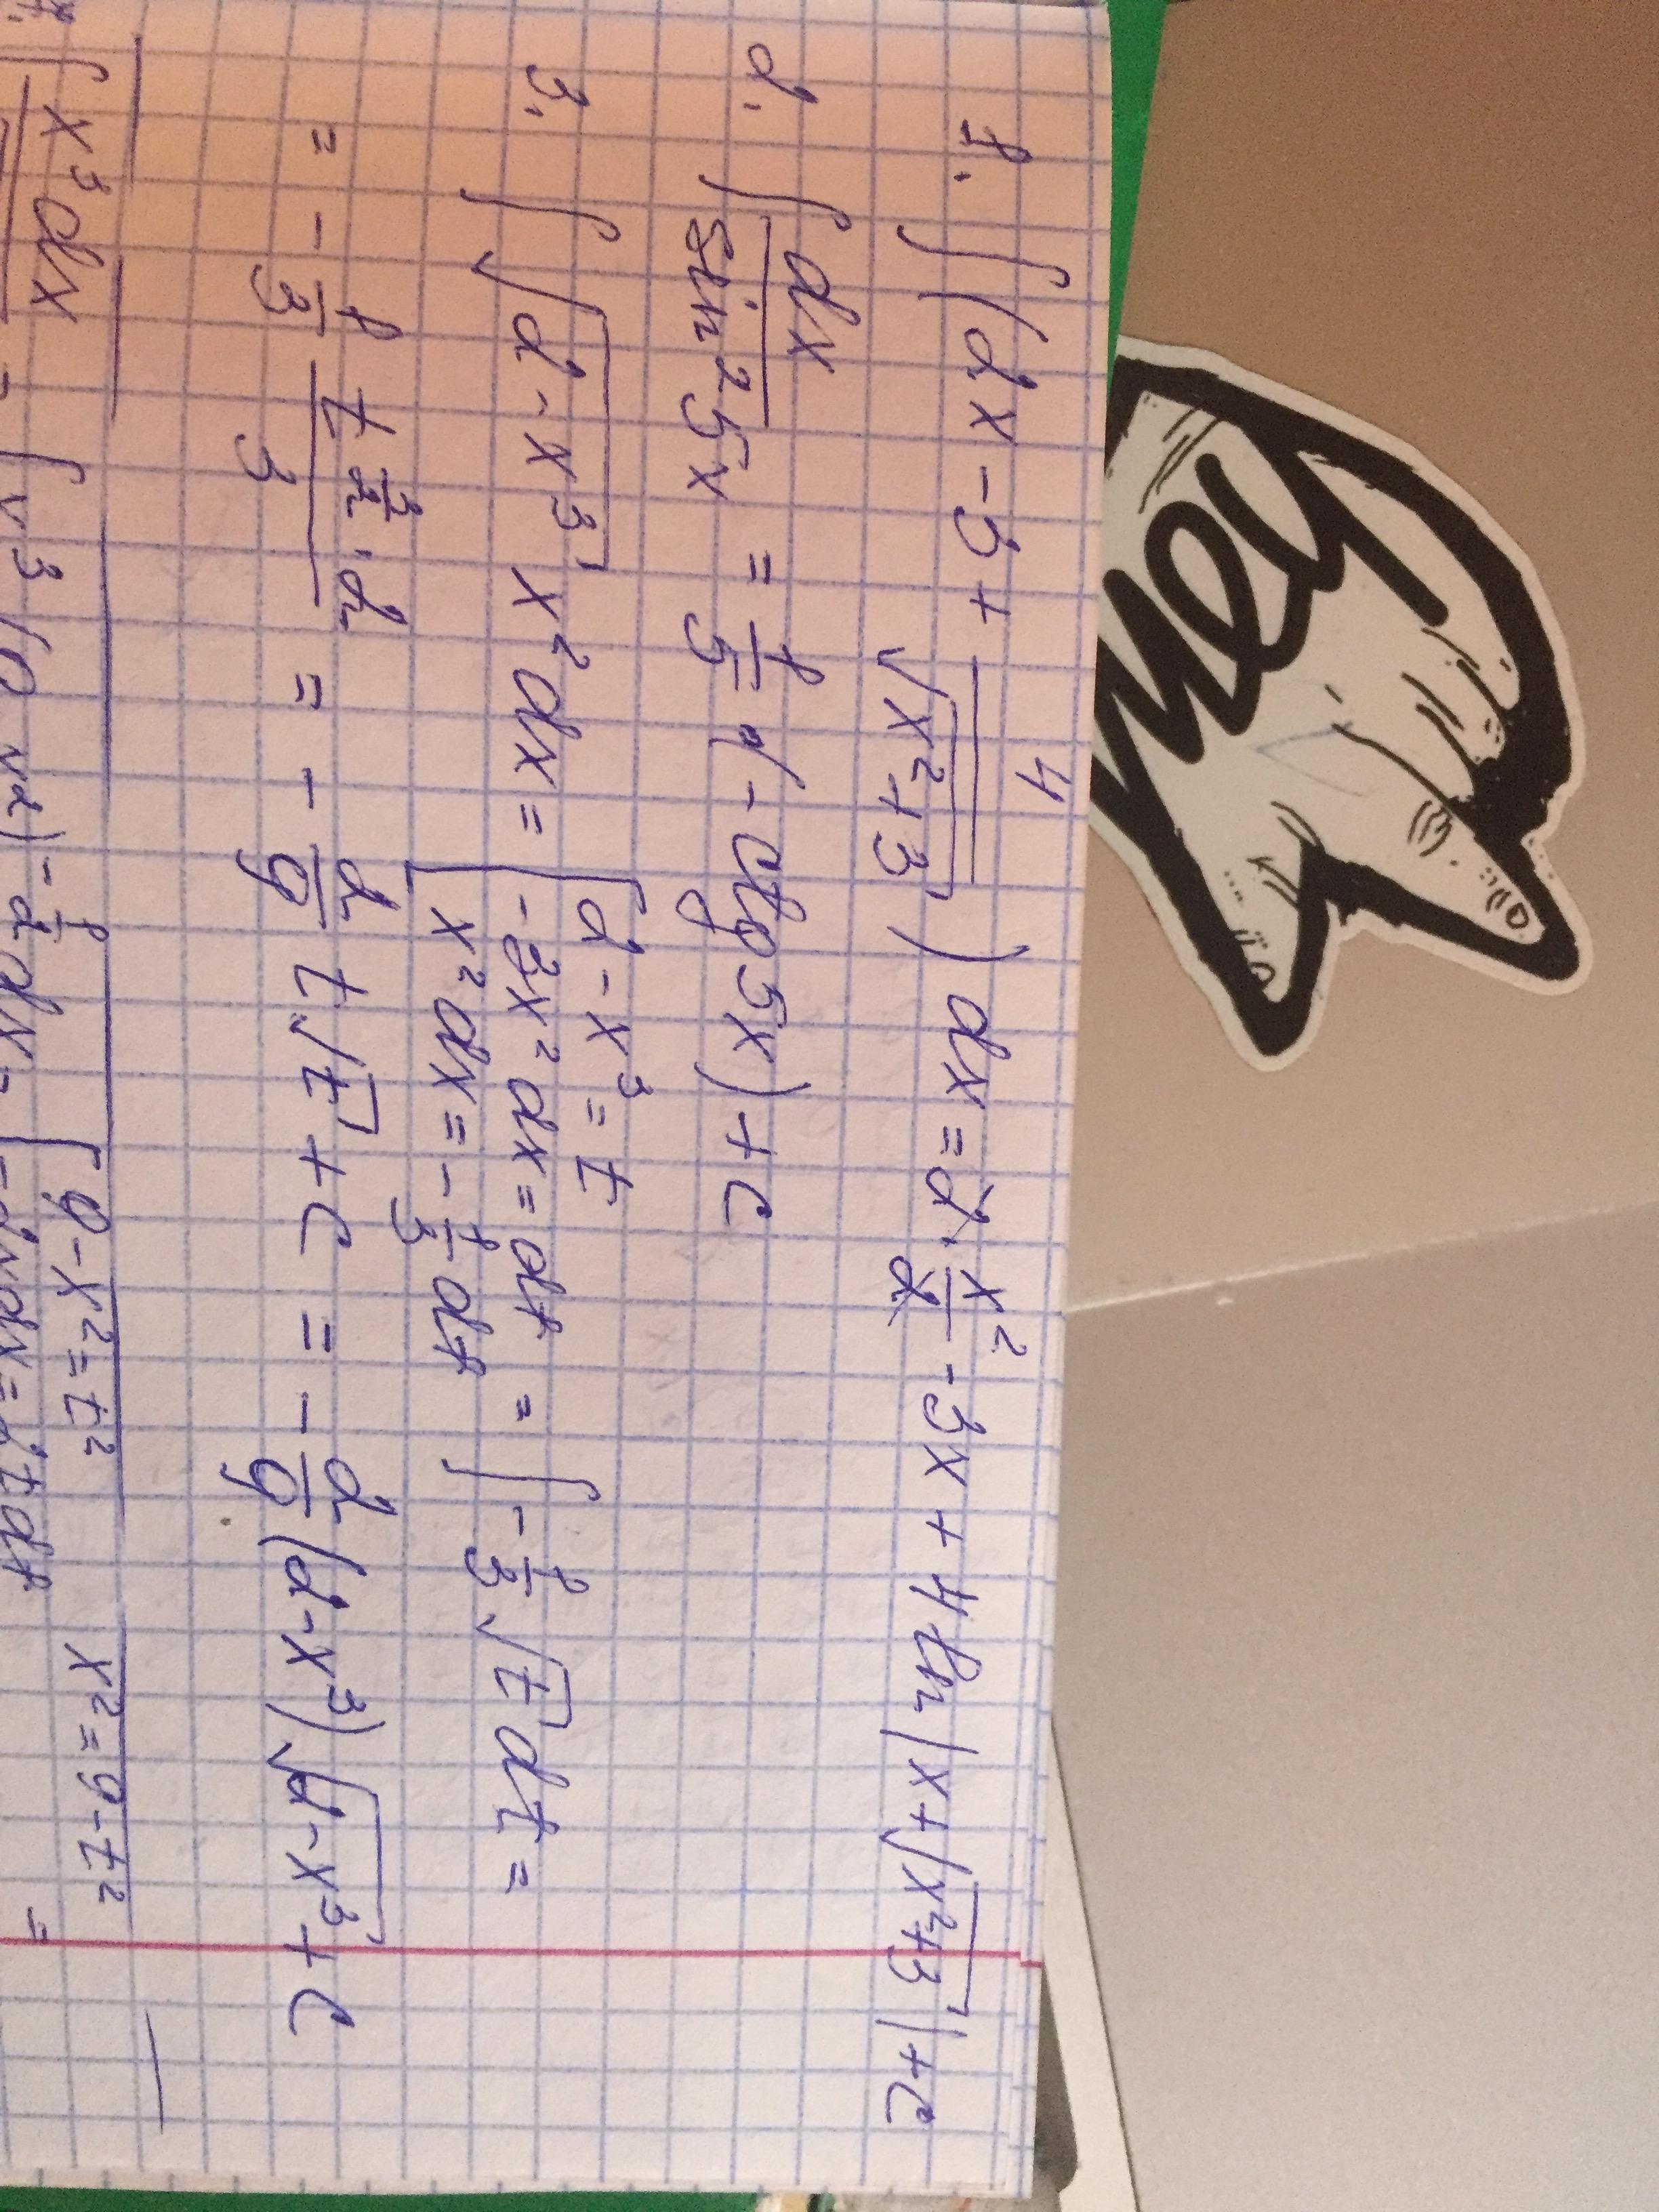 1. ∫(2x - 3 + 4/√(x²+3)) dx = 2·x²/2 - 3x + 4ln|x+√(x²+3)| + C
2. ∫ dx/sin²5x = 1/5 · (-ctg5x) + C
3. ∫√(2-x³) x²dx = [2-x³=t
-3x²dx=dt
x²dx=-1/3 dt = ∫-1/3 √t dt =
= -1/3 t^(3/2)·2/3 = -2/9 t√t + C = -2/9 (2-x³)√(2-x³) + C
9-x²=t² x²=9-t²
x³dx
=
mey